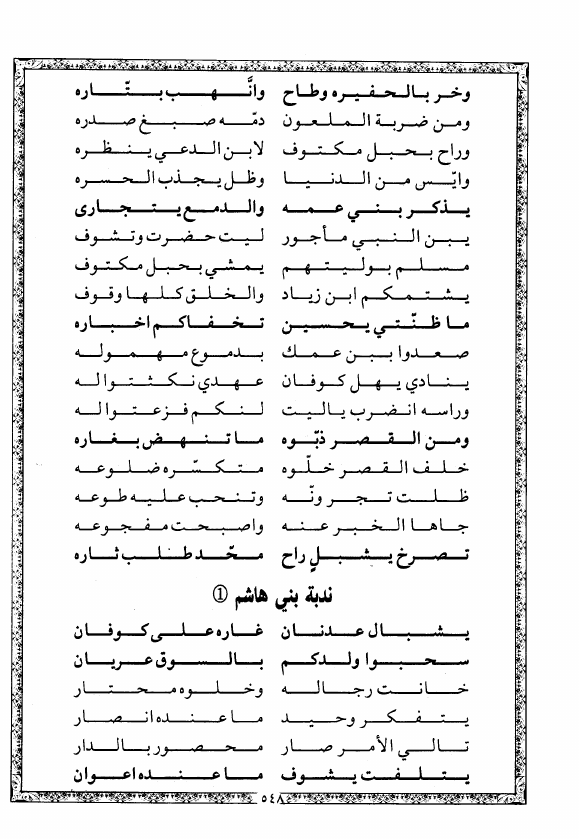 وخر بالحفيره وطاح وانَّهب بتّاره
ومن ضربة الملعون دمّه صبغ صدره
وراح بحبل مكتوف لابن الدعي ينظره
وايّس من الدنيا وظل يجذب الحسره
يذكر بني عمه والدمع يتجارى
يبن النبي مأجور ليت حضرت وتشوف
مسلم بوليتهم يمشي بحبل مكتوف
يشتمكم ابن زياد والخلق كلها وقوف
ما ظنّتي يحسين تخفاكم اخباره
صعدوا ببن عمك بدموع مهموله
ينادي يهل كوفان عهدي نكثتوا له
وراسه انضرب ياليت لنكم فزعتوا له
ومن القصر ذبّوه ما تنهض بغاره
خلف القصر خلّوه متكسّره ضلوعه
ظلت تجر ونّه وتنحب عليه طوعه
جاها الخبر عنه واصبحت مفجوعه
تصرخ يشبلٍ راح محّد طلب ثاره
ندبة بني هاشم ①
يشبال عدنان غاره على كوفان
سحبوا ولدكم بالسوق عريان
خانت رجاله وخلوه محتار
يتفكر وحيد ما عنده انصار
تالي الأمر صار محصور بالدار
يتلفت يشوف ما عنده اعوان
٥٤٨